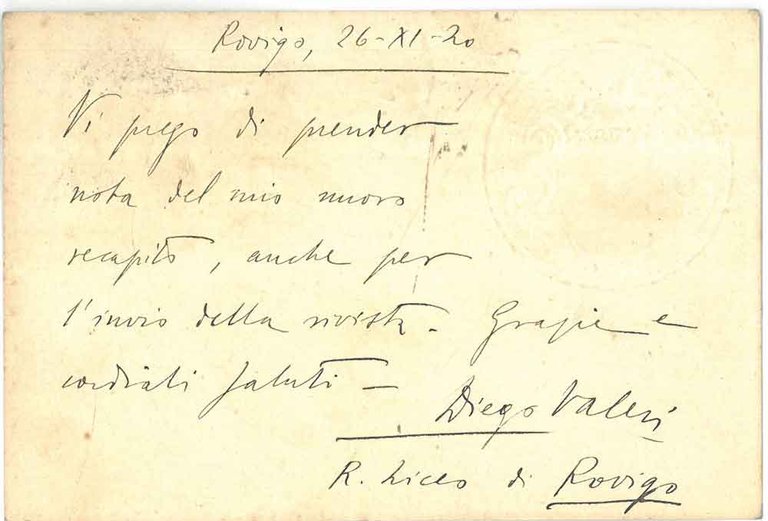 Rovigo, 26-XI-20
Vi prego di prender
nota del mio nuovo
recapito, anche per
l'invio della rivista. Grazie e
cordiali saluti —
Diego Valeri
R. Liceo di Rovigo